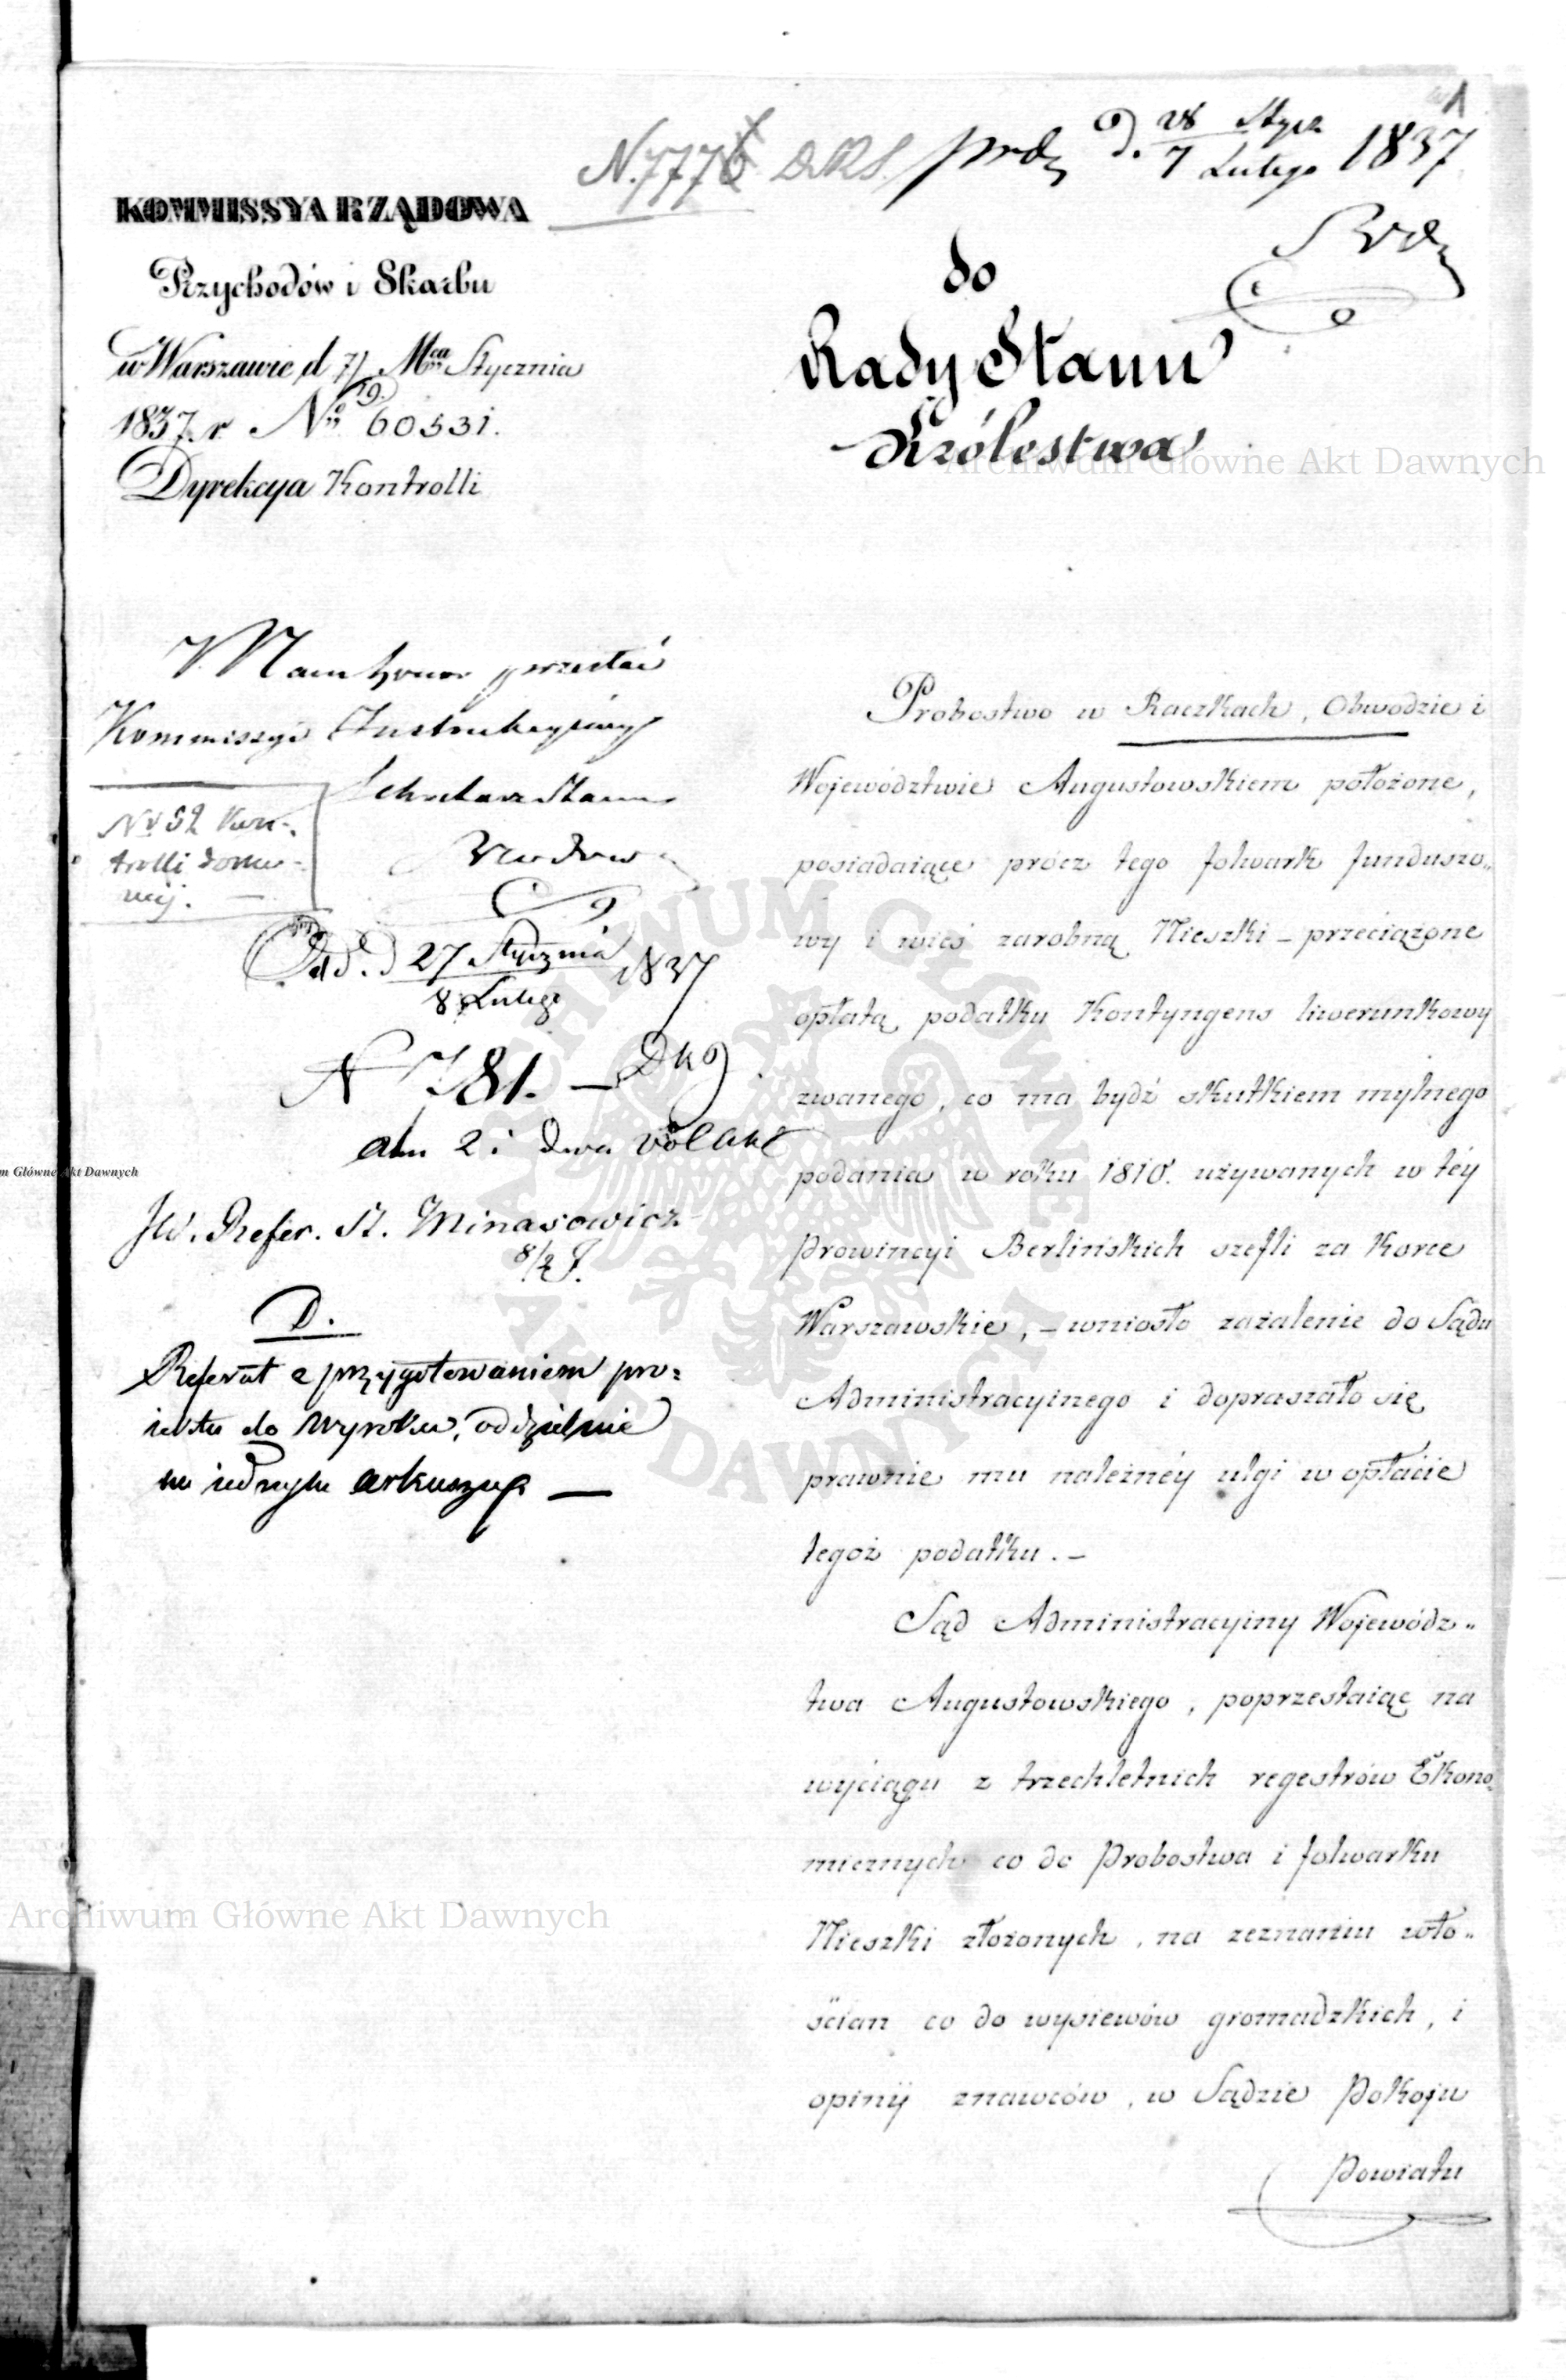 1
N. 7776 D.R.S. prdz d. 28 Stycz / 7 Lutego 1837
KOMMISSYA RZĄDOWA
Przychodów i Skarbu
w Warszawie d 7/19 Mca Stycznia
1837. r. No 60531.
Dyrekcya Kontrolli
do
Rady Stanu
Królestwa
Mam honor przesłać
Kommissyi Instrukcyjnéy
Sekretarz Stanu
No 52 Kon-
trolli docu-
Odd. d 27 Stycznia / 8 Lutego 1837
N 781. —
JW. Refer. St. Minasowicz
8/2
D.
Referat z przygotowaniem pro-
iektu do wyroku, oddzielnie
na iednym arkuszu. —
Probostwo w Raczkach, Obwodzie i
Województwie Augustowskiem położone,
posiadaiące prócz tego folwark funduszo„
wy i wieś zarobną Nieszki – przeciążone
opłatą podatku Kontyngens liwerunkowy
zwanego, co ma bydź skutkiem mylnego
podania w roku 1810. używanych w téy
Prowincyi Berlińskich szefli za Korce
Warszawskie, – wniosło zażalenie do Sądu
Administracyinego i dopraszało się
prawnie mu należnéy ulgi w opłacie
tegoż podatku. –
Sąd Administracyiny Wojewódz„
twa Augustowskiego, poprzestaiąc na
wyciągu z trzechletnich regestrów Ekono„
micznych co do Probostwa i folwarku
Nieszki złożonych, na zeznaniu wło„
ścian co do wysiewów gromadzkich, i
opinij znawców, w Sądzie Pokoju
Powiatu
Archiwum Główne Akt Dawnych
m Główne Akt Dawnych
Archiwum Główne Akt Dawnych
ARCHIWUM GŁÓWNE AKT DAWNYCH